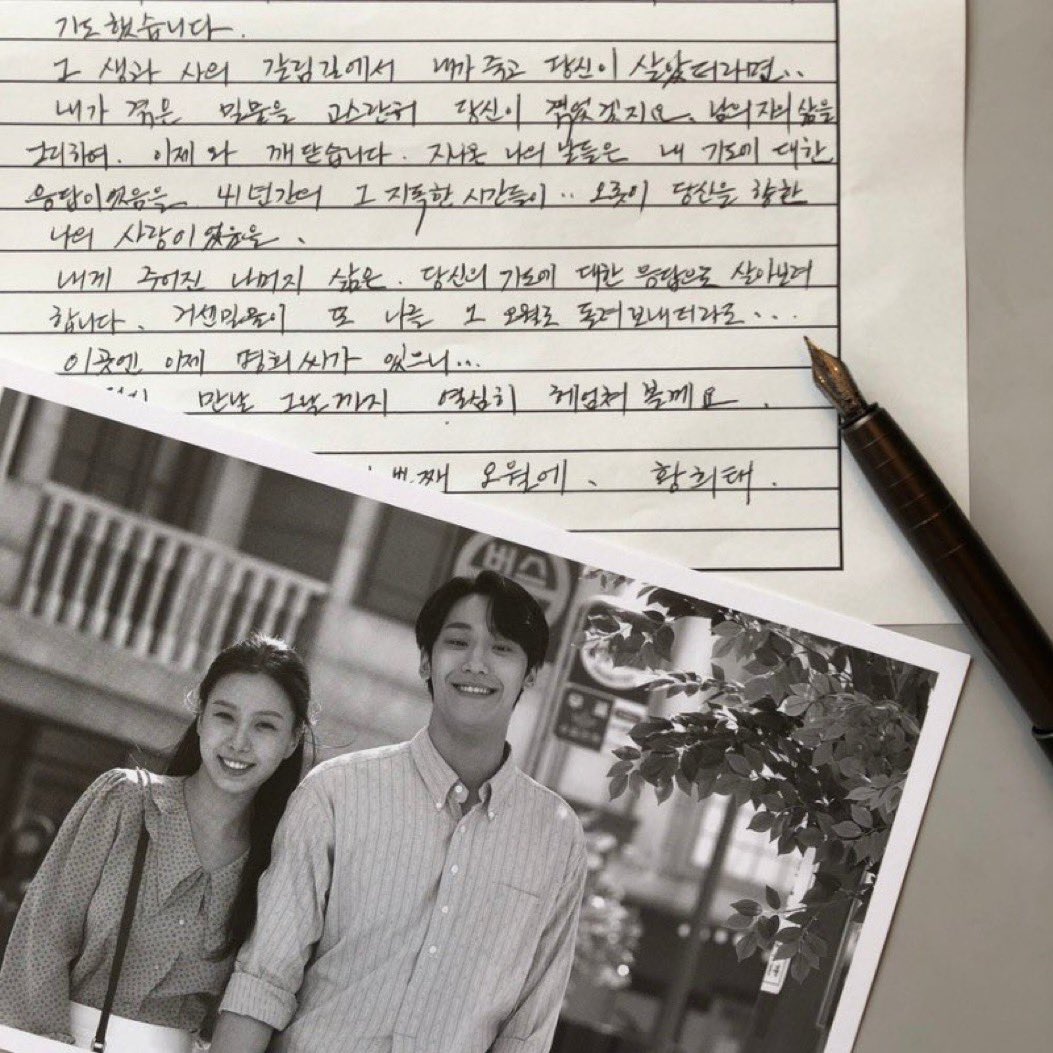 기도했습니다.
그 생과 사의 갈림길에서 내가 죽고 당신이 살았더라면..
내가 겪은 밀물을 고스란히 당신이 겪었겠지요. 남은 자의 삶을
하여. 이제와 깨닫습니다. 지나온 나의 날들은 내 기도에 대한
응답이었음을. 41년간의 그 지독한 시간들이.. 오롯이 당신을 향한
나의 사랑이었음을.
내게 주어진 나머지 삶은. 당신의 기도에 대한 응답으로 살아보려
합니다. 거센 밀물이 또 나를 그 오월로 돌려보내더라도...
이곳엔 이제 명희씨가 있으니...
만날 그날까지 열심히 헤엄쳐 볼께요.
번째 오월에. 황희태.
버스